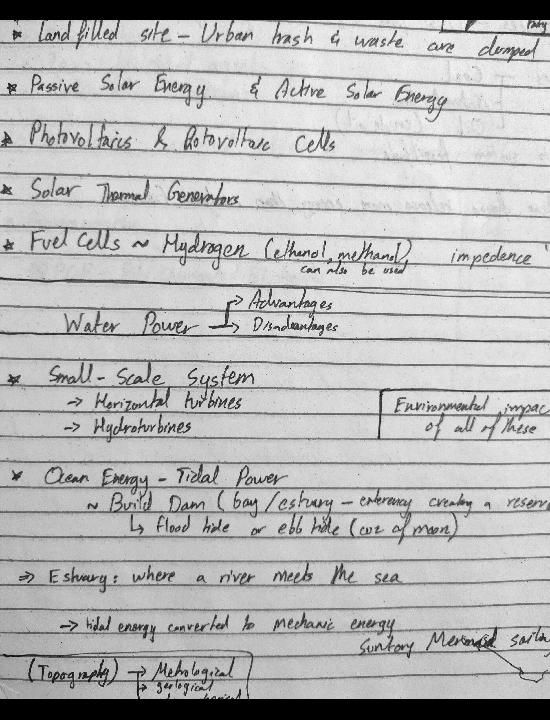 * Landfilled site – Urban trash & waste are dumped
* Passive Solar Energy & Active Solar Energy
* Photovoltaics & Potovoltaic Cells
* Solar Thermal Generators
* Fuel Cells ~ Hydrogen (ethanol, methanol) impedence
can also be used
Water Power → Advantages
→ Disadvantages
* Small-Scale System
→ Horizontal turbines
→ Hydroturbines
Environmental impac
of all of these
* Ocean Energy – Tidal Power
~ Build Dam (bay/estuary – creating a reserv
↳ flood tide or ebb tide (cuz of moon)
⇒ Estuary: where a river meets the sea
→ tidal energy converted to mechanic energy
Suntory Mermaid
(Topography) → Metrological
→ geological